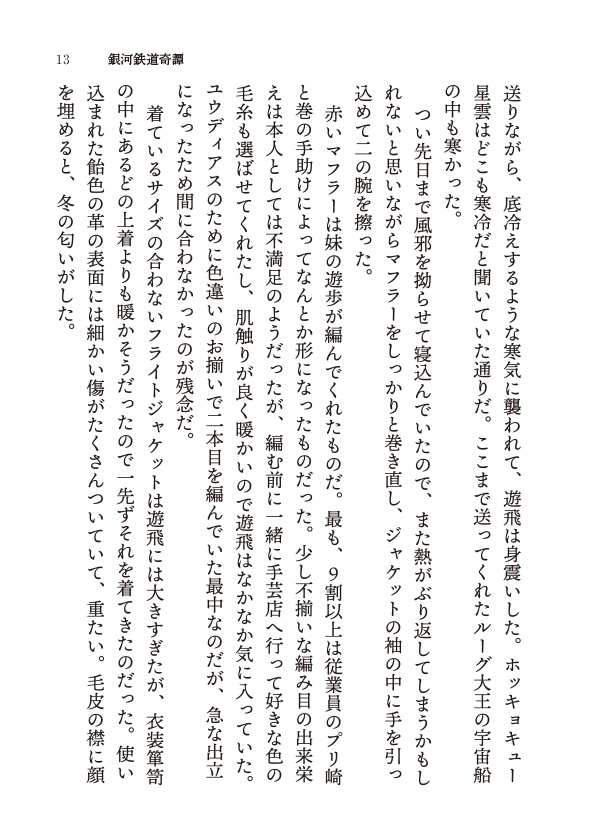 13 銀河鉄道奇譚
送りながら、底冷えするような寒気に襲われて、遊飛は身震いした。ホッキョキュー
星雲はどこも寒冷だと聞いていた通りだ。ここまで送ってくれたルーグ大王の宇宙船
の中も寒かった。
つい先日まで風邪を拗らせて寝込んでいたので、また熱がぶり返してしまうかもし
れないと思いながらマフラーをしっかりと巻き直し、ジャケットの袖の中に手を引っ
込めて二の腕を擦った。
赤いマフラーは妹の遊歩が編んでくれたものだ。最も、９割以上は従業員のプリ崎
と巻の手助けによってなんとか形になったものだった。少し不揃いな編み目の出来栄
えは本人としては不満足のようだったが、編む前に一緒に手芸店へ行って好きな色の
毛糸も選ばせてくれたし、肌触りが良く暖かいので遊飛はなかなか気に入っていた。
ユウディアスのために色違いのお揃いで二本目を編んでいた最中なのだが、急な出立
になったため間に合わなかったのが残念だ。
着ているサイズの合わないフライトジャケットは遊飛には大きすぎたが、衣装箪笥
の中にあるどの上着よりも暖かそうだったので一先ずそれを着てきたのだった。使い
込まれた飴色の革の表面には細かい傷がたくさんついていて、重たい。毛皮の襟に顔
を埋めると、冬の匂いがした。